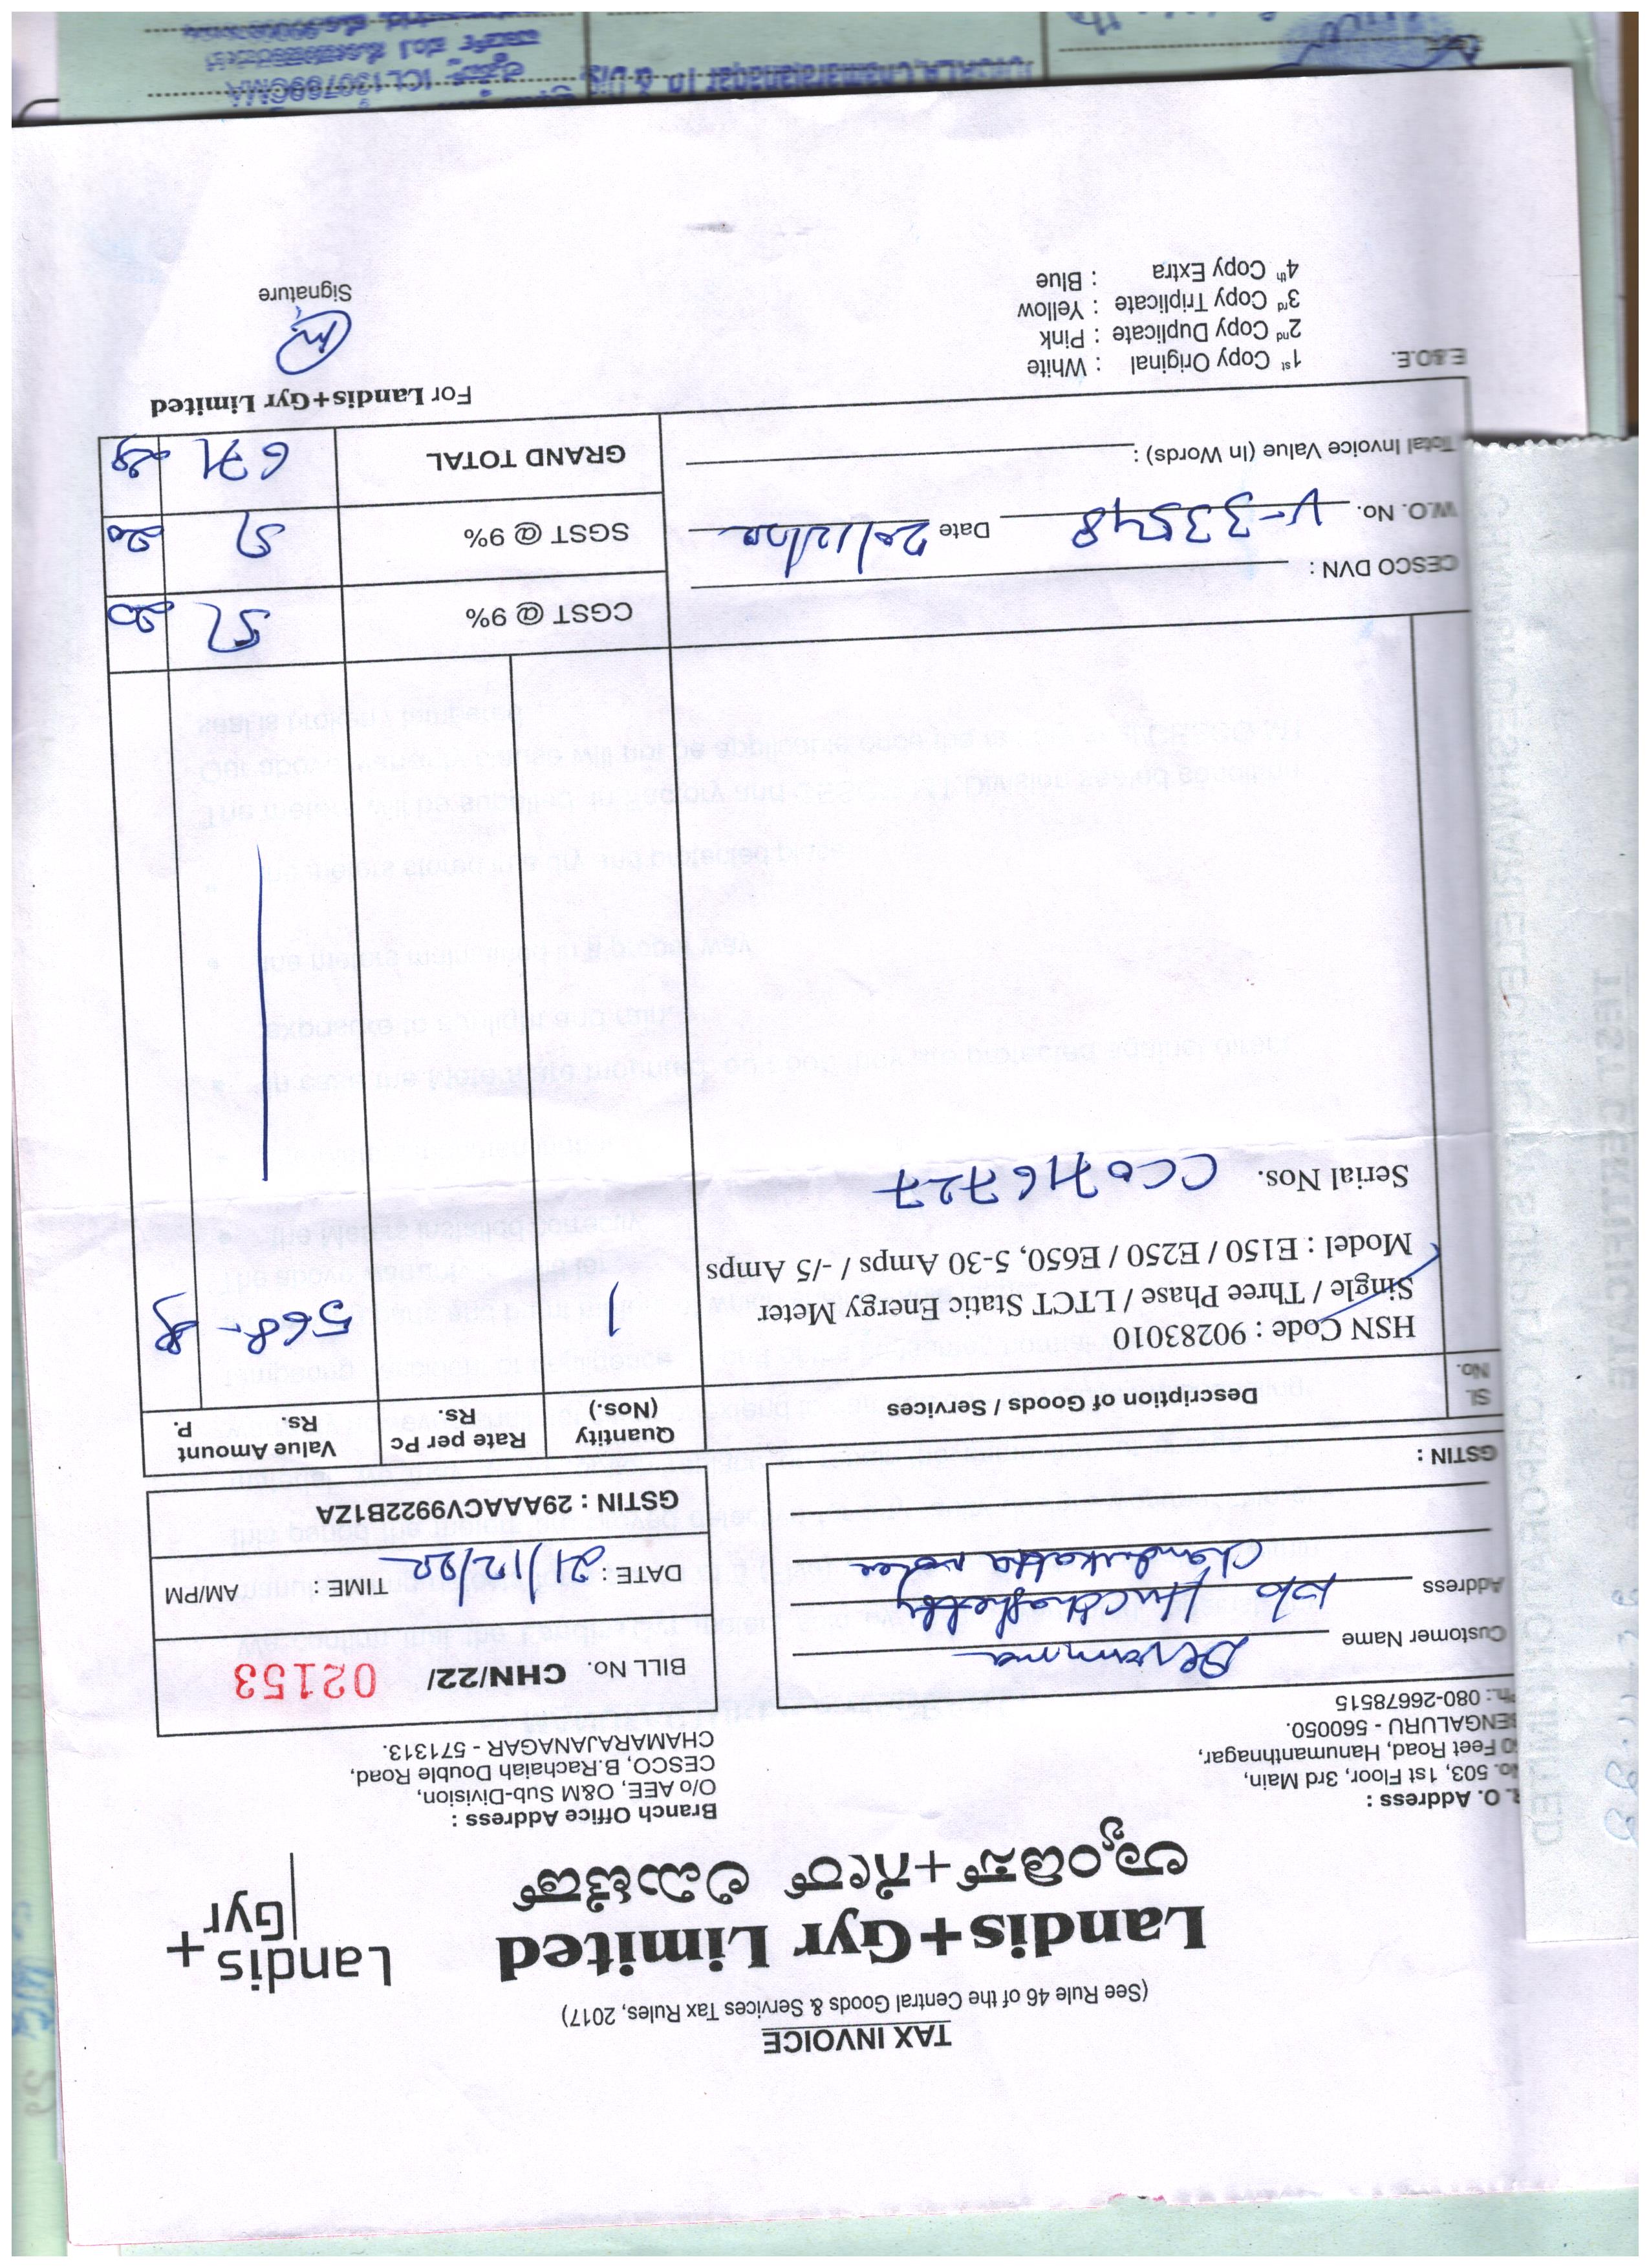 TAX INVOICE
(See Rule 46 of the Central Goods & Services Tax Rules, 2017)
Landis+Gyr Limited
ಲ್ಯಾಂಡಿಸ್+ಗೀರ್ ಲಿಮಿಟೆಡ್
Landis+
Gyr
R. O. Address :
No. 503, 1st Floor, 3rd Main,
Feet Road, Hanumanthnagar,
BENGALURU - 560050.
Ph.: 080-26678515
Branch Office Address :
O/o AEE, O&M Sub-Division,
CESCO, B.Rachaiah Double Road,
CHAMARAJANAGAR - 571313.
Customer Name Devamma
Address
GSTIN :
BILL No. CHN/22/ 02153
DATE : 21/12/22 TIME : AM/PM
GSTIN : 29AAACV9922B1ZA
Sl. No. Description of Goods / Services Quantity (Nos.) Rate per Pc Rs. Value Amount Rs. P.
HSN Code : 90283010
Single / Three Phase / LTCT Static Energy Meter 1 568-
Model : E150 / E250 / E650, 5-30 Amps / -/5 Amps
Serial Nos. CC0716727
CGST @ 9% 51 20
SGST @ 9% 51 20
GRAND TOTAL 671
CESCO DVN :
W.O. No. V-33548 Date 20/12/22
Total Invoice Value (In Words) :
E.&O.E.
1st Copy Original : White
2nd Copy Duplicate : Pink
3rd Copy Triplicate : Yellow
4th Copy Extra : Blue
For Landis+Gyr Limited
Signature
TEST CERTIFICATE